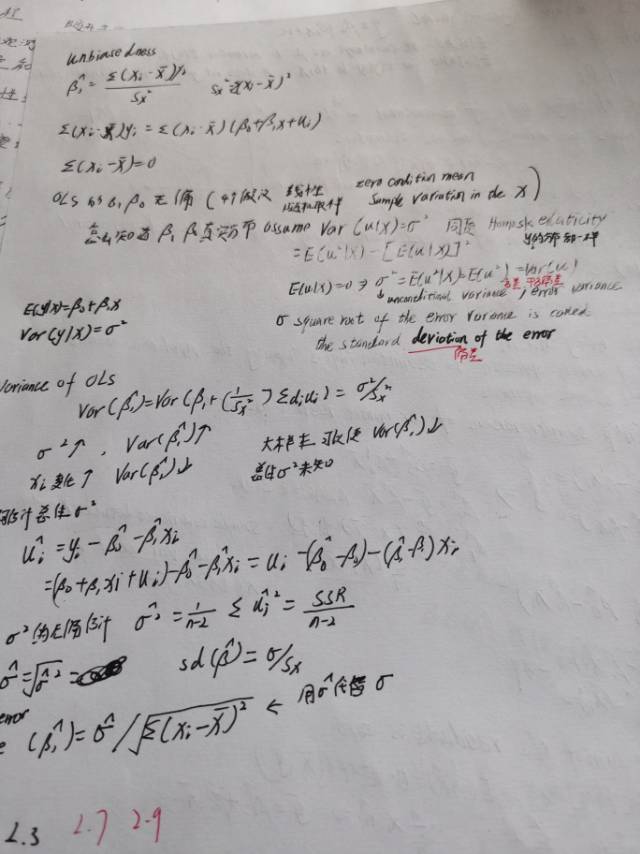 unbiasedness
β₁^ = Σ(xᵢ-x̄)yᵢ / Sx² Sx² Σ(xᵢ-x̄)²
Σ(xᵢ-x̄)yᵢ = Σ(xᵢ-x̄)(β₀+β₁x+uᵢ)
Σ(xᵢ-x̄)=0
OLS 的 β₁ β₀ 无偏 (4个假设 线性 随机取样 zero condition mean Sample variation in the x)
怎么知道 β₁ β₀ 真实方 assume Var(u|x)=σ² 同质 Homoskedaticity
y的方都一样
=E(u²|x) - [E(u|x)]²
E(u|x)=0 ⇒ σ²=E(u²|x)=E(u²)=Var(u)
unconditional variance / error variance
E(y|x)=β₀+β₁x
Var(y|x)=σ²
σ square root of the error variance is called
the standard deviation of the error
Variance of OLS
Var(β₁^)=Var(β₁+(1/Sx²)Σdᵢuᵢ)= σ²/Sx²
σ²↑, Var(β₁^)↑ 大样本 可以使 Var(β₁^)↓
xᵢ变化↑ Var(β₁^)↓ 总体σ²未知
估计总体σ²
uᵢ^ = yᵢ - β₀^ - β₁^xᵢ
=(β₀+β₁xᵢ+uᵢ)-β₀^-β₁^xᵢ = uᵢ -(β₀^-β₀)-(β₁^-β₁)xᵢ
σ²的无偏估计 σ^² = 1/(n-2) Σuᵢ^² = SSR/(n-2)
σ^=√σ^² = sd(β^)=σ/Sx
error
(β₁^)=σ^/√Σ(xᵢ-x̄)² ← 用σ^代替σ
2.3 2.7 2.9